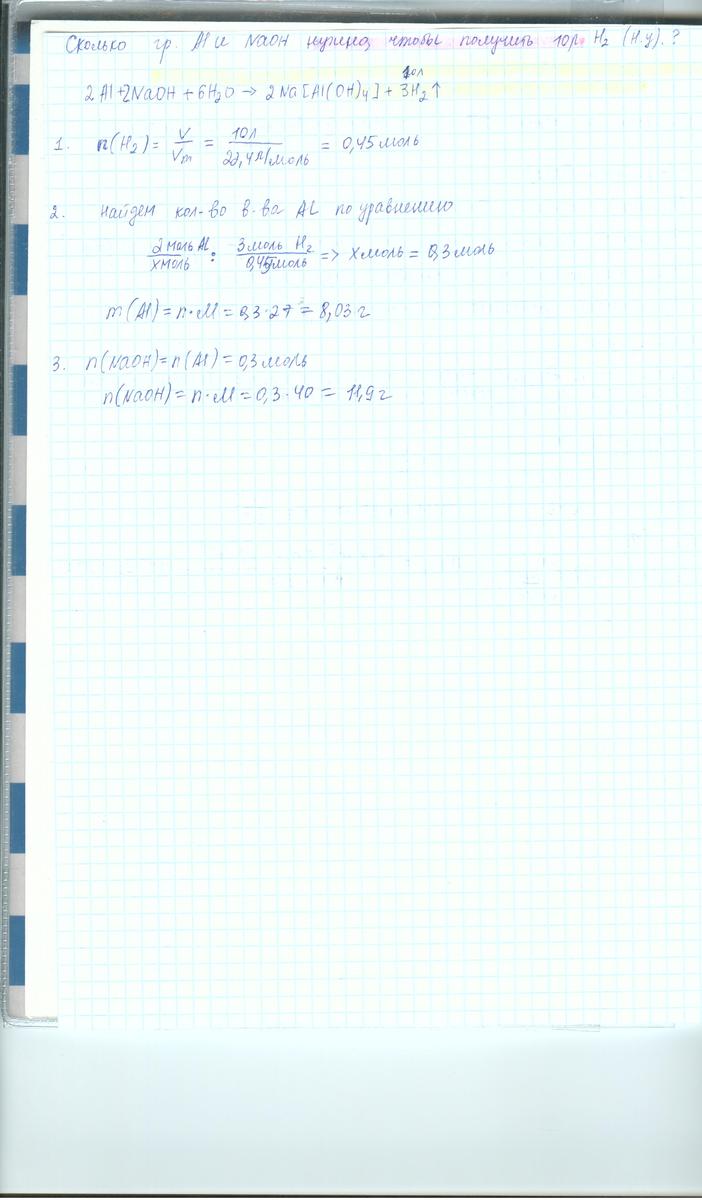 Сколько гр. Al и NaOH нужно, чтобы получить 10л H₂ (н.у).?
10л
2Al+2NaOH + 6H₂O → 2Na[Al(OH)₄] + 3H₂↑
1. n(H₂) = V/Vm = 10л/22,4л/моль = 0,45моль
2. Найдем кол-во в-ва Al по уравнению
2моль Al/xмоль : 3моль H₂/0,45моль => xмоль = 0,3моль
m(Al) = n·M = 0,3·27 = 8,03г
3. n(NaOH) = n(Al) = 0,3моль
n(NaOH) = n·M = 0,3·40 = 11,9г